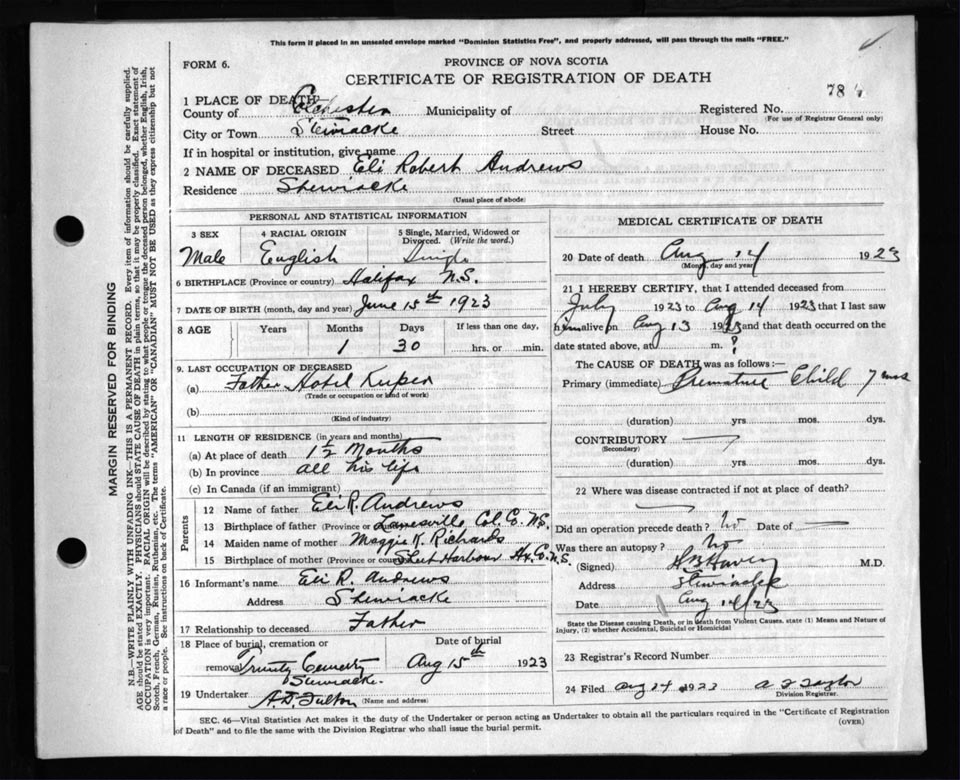 This form if placed in an unsealed envelope marked "Dominion Statistics Free", and properly addressed, will pass through the mails "FREE."
FORM 6.
PROVINCE OF NOVA SCOTIA
CERTIFICATE OF REGISTRATION OF DEATH
78
1 PLACE OF DEATH
County of Colchester Municipality of Registered No.
(For use of Registrar General only)
City or Town Stewiacke Street House No.
If in hospital or institution, give name
2 NAME OF DECEASED Eli Robert Andrews
Residence Shewiacke
(Usual place of abode)
PERSONAL AND STATISTICAL INFORMATION
3 SEX 4 RACIAL ORIGIN 5 Single, Married, Widowed or Divorced. (Write the word.)
Male English Single
6 BIRTHPLACE (Province or country) Halifax N.S.
7 DATE OF BIRTH (month, day and year) June 15th 1923
8 AGE Years Months Days If less than one day,
1 30 hrs. or min.
9. LAST OCCUPATION OF DECEASED
(a) Father Hotel Keeper
(Trade or occupation or kind of work)
(b)
(Kind of industry)
11 LENGTH OF RESIDENCE (in years and months)
(a) At place of death 1 1/2 Months
(b) In province all his life
(c) In Canada (if an immigrant)
Parents
12 Name of father Eli R. Andrews
13 Birthplace of father (Province or Lanesville Col. Co. N.S.
14 Maiden name of mother Maggie K. Richards
15 Birthplace of mother (Province or country) Sheet Harbour Hx. Co. N.S.
16 Informant's name Eli R. Andrews
Address Shewiacke
17 Relationship to deceased Father
18 Place of burial, cremation or Date of burial
removal Trinity Cemerty Aug 15th 1923
Stewiacke.
19 Undertaker A. D. Fulton
(Name and address)
MEDICAL CERTIFICATE OF DEATH
20 Date of death Aug 14 1923
(Month, day and year)
21 I HEREBY CERTIFY, that I attended deceased from
July 1923 to Aug 14 1923 that I last saw
him alive on Aug 13 1923 and that death occurred on
date stated above, at m. ?
The CAUSE OF DEATH was as follows:—
Primary (immediate) Premature Child 7 mos
(duration) yrs. mos. dys.
CONTRIBUTORY
(Secondary)
(duration) yrs. mos. dys.
22 Where was disease contracted if not at place of death?
Did an operation precede death? No Date of
Was there an autopsy? No
(Signed) M.D.
Address Stewiacke
Date Aug 14/23
State the Disease causing Death, or in death from Violent Causes, state (1) Means and Nature of
Injury, (2) whether Accidental, Suicidal or Homicidal
23 Registrar's Record Number
24 Filed Aug 24 1923 Taylor
Division Registrar.
SEC. 46—Vital Statistics Act makes it the duty of the Undertaker or person acting as Undertaker to obtain all the particulars required in the "Certificate of Registration
of Death" and to file the same with the Division Registrar who shall issue the burial permit.
(OVER)
MARGIN RESERVED FOR BINDING
N.B.—WRITE PLAINLY WITH UNFADING INK—THIS IS A PERMANENT RECORD. Every item of information should be carefully supplied.
AGE should be stated EXACTLY. PHYSICIANS should STATE CAUSE OF DEATH in plain terms, so that it may be properly classified. Exact statement of
OCCUPATION is very important. RACIAL ORIGIN will be described by stating to what people or tongue the deceased person belonged, whether English, Irish,
Scotch, French, German, Russian, Ruthenian, etc. The terms "AMERICAN" OR "CANADIAN" MUST NOT BE USED as they express citizenship but not
a race or people. See instructions on back of Certificate.